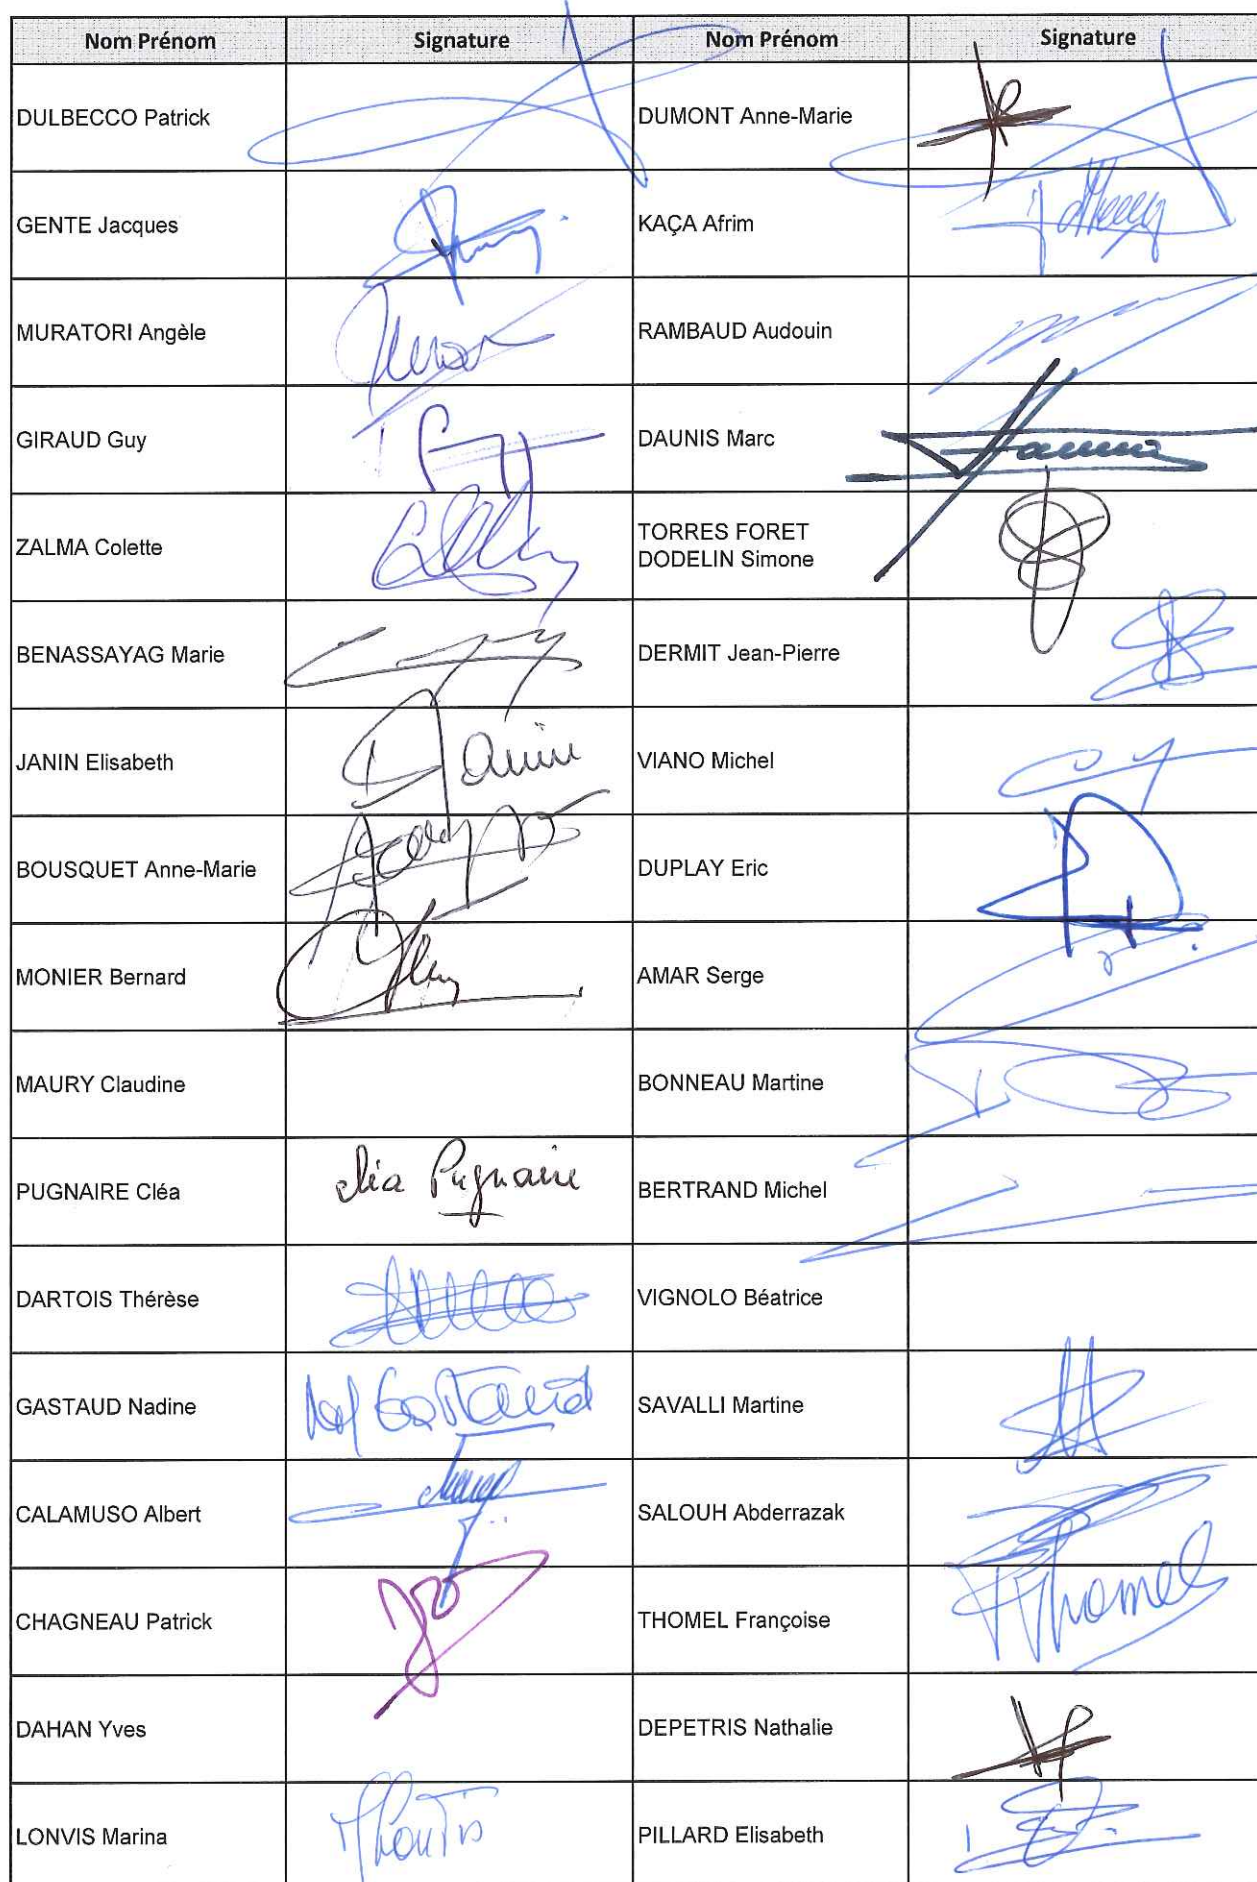 Nom Prénom Signature Nom Prénom Signature
DULBECCO Patrick DUMONT Anne-Marie
GENTE Jacques KAÇA Afrim
MURATORI Angèle RAMBAUD Audouin
GIRAUD Guy DAUNIS Marc
ZALMA Colette TORRES FORET
DODELIN Simone
BENASSAYAG Marie DERMIT Jean-Pierre
JANIN Elisabeth Janin VIANO Michel
BOUSQUET Anne-Marie DUPLAY Eric
MONIER Bernard AMAR Serge
MAURY Claudine BONNEAU Martine
PUGNAIRE Cléa Cléa Pugnaire BERTRAND Michel
DARTOIS Thérèse VIGNOLO Béatrice
GASTAUD Nadine Gastaud SAVALLI Martine
CALAMUSO Albert SALOUH Abderrazak
CHAGNEAU Patrick THOMEL Françoise Thomel
DAHAN Yves DEPETRIS Nathalie
LONVIS Marina PILLARD Elisabeth